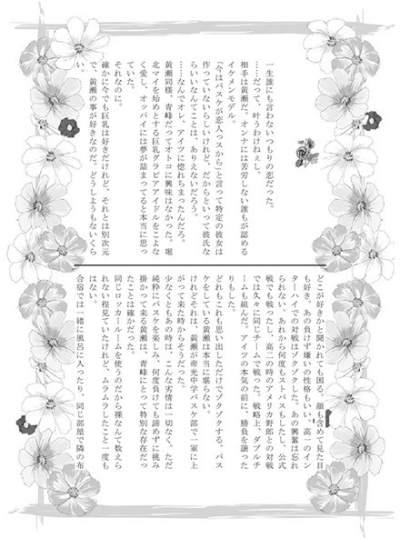 一生誰にも言わないつもりの恋だった。
……だって、叶うわけねぇし。
相手は黄瀬だ。オンナには苦労しない誰もが認める
イケメンモデル。
「今はバスケが恋人っスから」と言って特定の彼女は
作っていないらしいけれど、だからといって彼氏な
らいいなんてことは、ありえないだろう。
……なんでオレ、アイツに惚れちまったんだろ。
黄瀬同様、青峰だってオトコに興味はなかった。堀
北マイを始めとする巨乳グラビアアイドルをこよな
く愛し、オッパイには夢が詰まってると本当に思っ
ていた。
それなのに。
確かに今でも巨乳は好きだけれど、それとは別次元
で、黄瀬の事が好きなのだ、どうしようもないくら
い。
どこが好きかと聞かれても困る。顔も含めて見た目
も好き。あの負けず嫌いの性格もいい。高一のイン
ターハイでの対戦はゾクゾクした。あの興奮は忘れ
られない。あれから何度もストバスもしたし、公式
戦でも戦ったし、高二の時のアメリカ野郎との対戦
では久々に同じチームで戦った。戦略上、ダブルチ
ームも組んだ。アイツの本気の前に、勝負を譲った
りもした。
どれもこれも思い出しただけでゾクゾクする。バス
ケをしている黄瀬は本当に堪らない。
けれどそれは、黄瀬が帝光中学バスケ部で一軍に上
がって来た時からそうだった。
少なくともあの時は、こんな劣情は一切なく、ただ
純粋にバスケを楽しみ、何度負けても諦めずに挑み
掛かって来る黄瀬は、青峰にとって特別な存在だっ
たことは確かだった。
同じロッカールームを使うのだから裸なんて数えら
れない程見ていたけれど、ムラムラしたこと一度も
はない。
合宿では一緒に風呂に入ったり、同じ部屋で隣の布